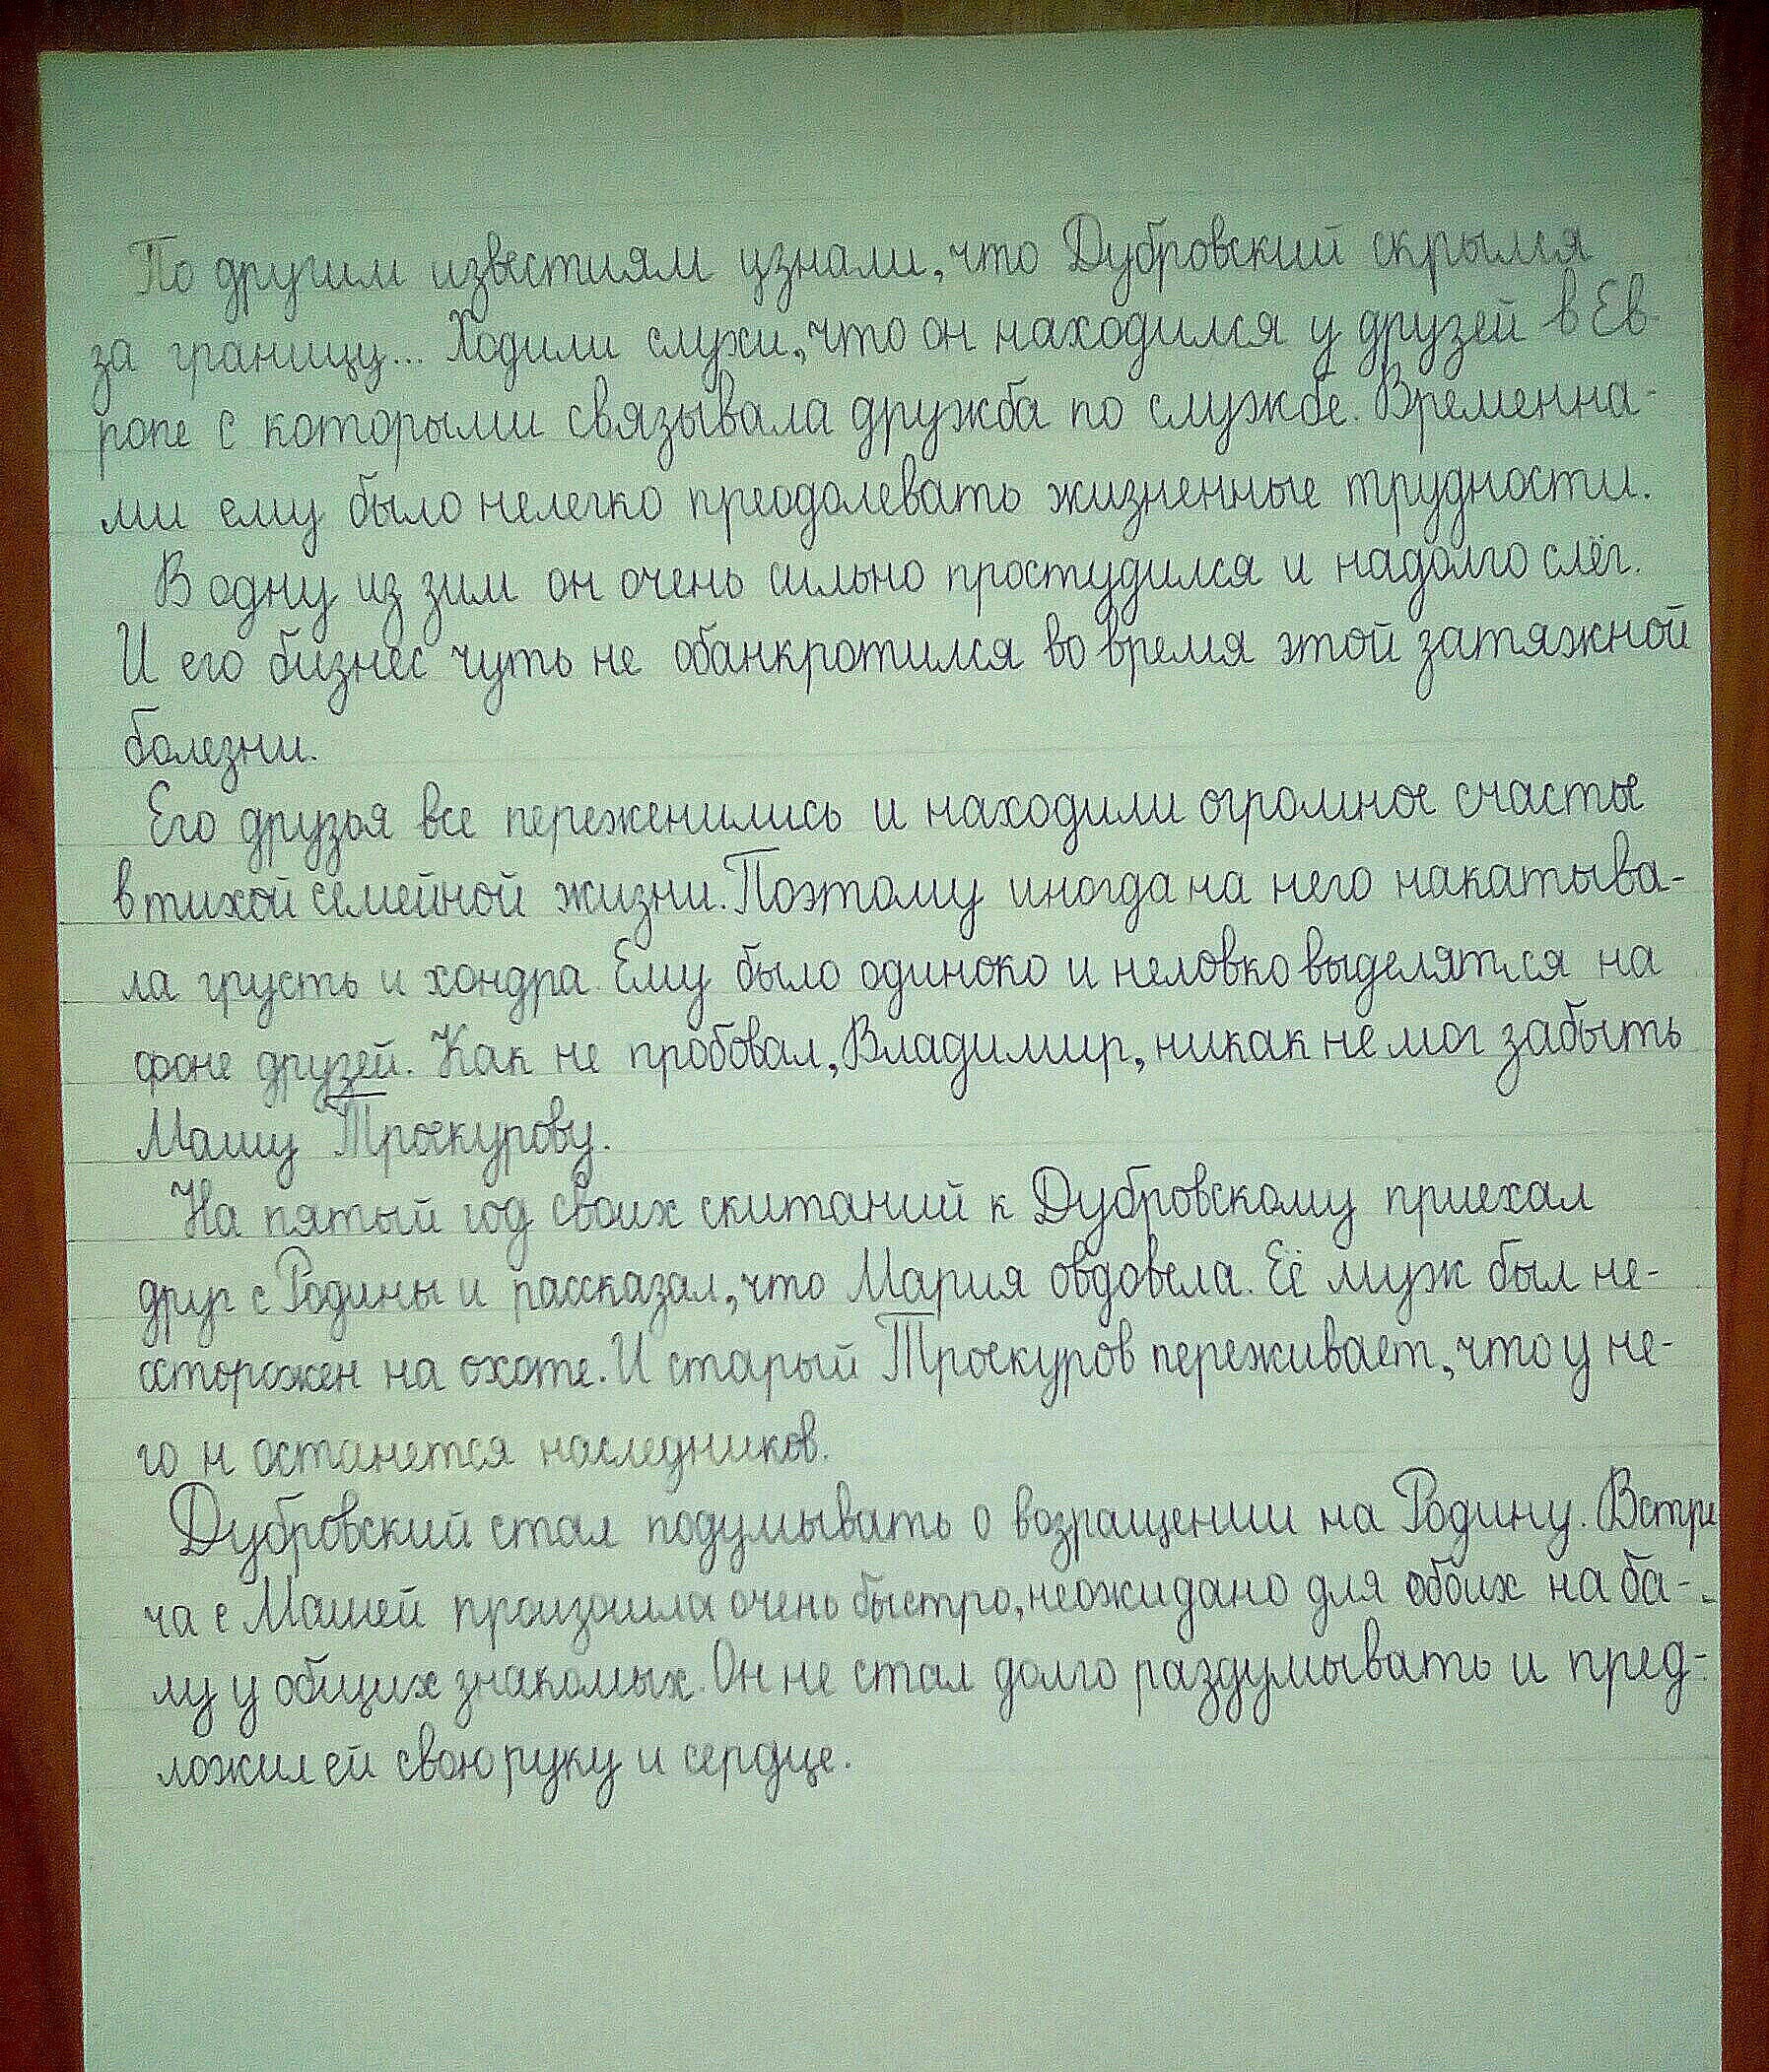 По другим известиям узнали, что Дубровский скрылся
за границу... Ходили слухи, что он находился у друзей в Ев-
ропе с которыми связывала дружба по службе. Временна-
ми ему было нелегко преодолевать жизненные трудности.
В одну из зим он очень сильно простудился и надолго слёг.
И его бизнес чуть не обанкротился во время этой затяжной
болезни.
Его друзья все переженились и находили огромное счастье
в тихой семейной жизни. Поэтому иногда на него накатыва-
ла грусть и хондра. Ему было одиноко и неловко выделятся на
фоне друзей. Как не пробовал, Владимир, никак не мог забыть
Машу Троекурову.
На пятый год своих скитаний к Дубровскому приехал
друг с Родины и рассказал, что Мария овдовела. Её муж был не-
осторожен на охоте. И старый Троекуров переживает, что у не-
го н останется наследников.
Дубровский стал подумывать о возращении на Родину. Встре
ча с Машей произошла очень быстро, неожидано для обоих на ба-
лу у общих знакомых. Он не стал долго раздумывать и пред-
ложил ей свою руку и сердце.